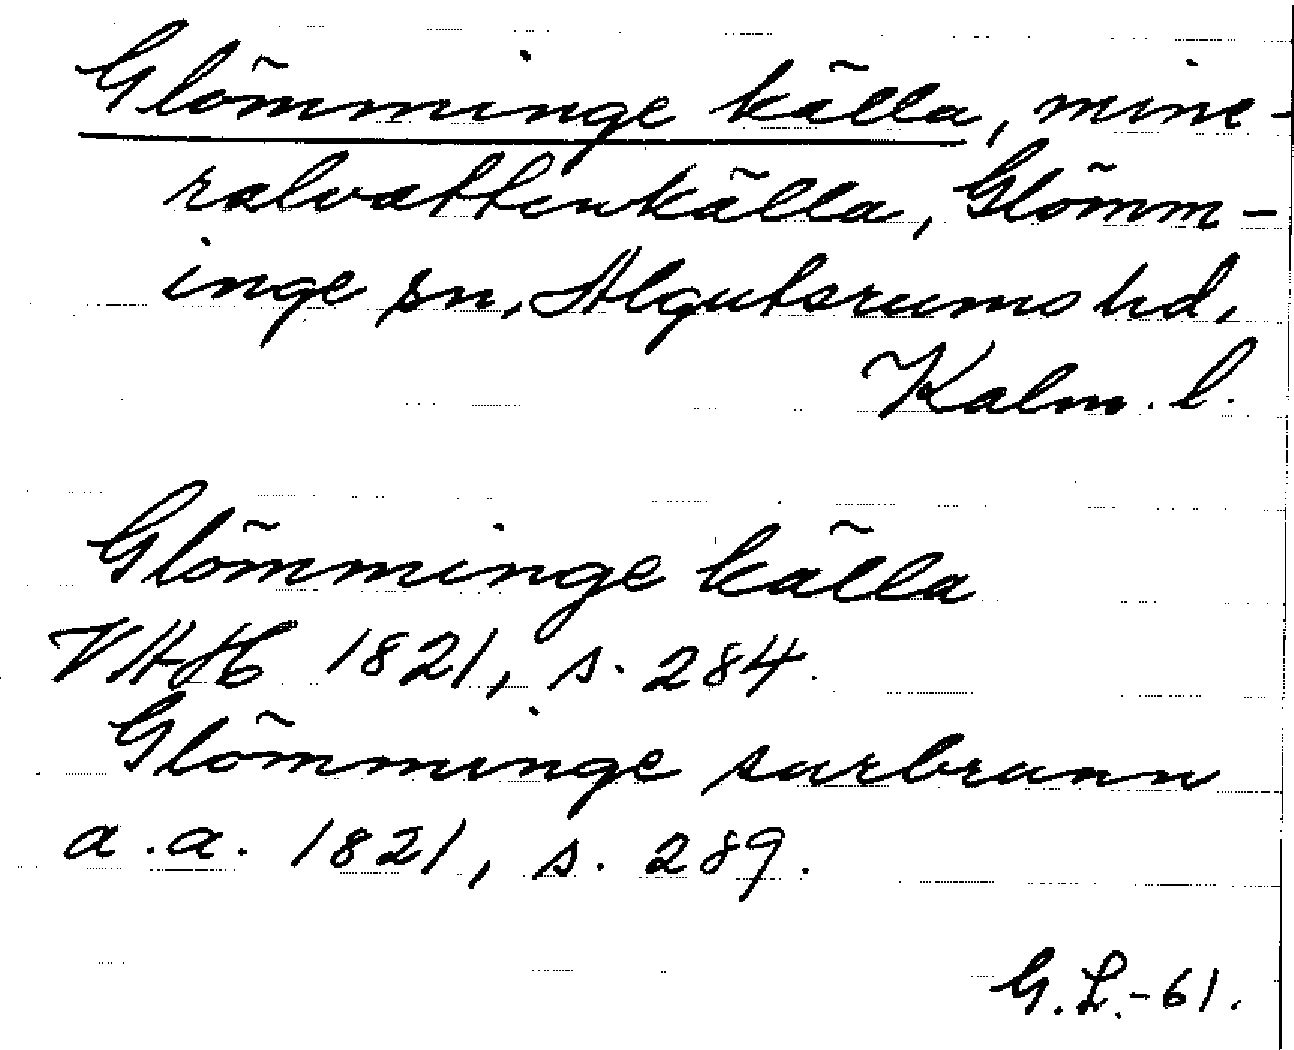 Glömminge källa, mine-
ralvattenkälla, Glömm-
inge sn, Algutsrums hd,
Kalm. l.
Glömminge källa
VHAH 1821, s. 284.
Glömminge surbrunn
a.a. 1821, s. 289.
G.L.-61.